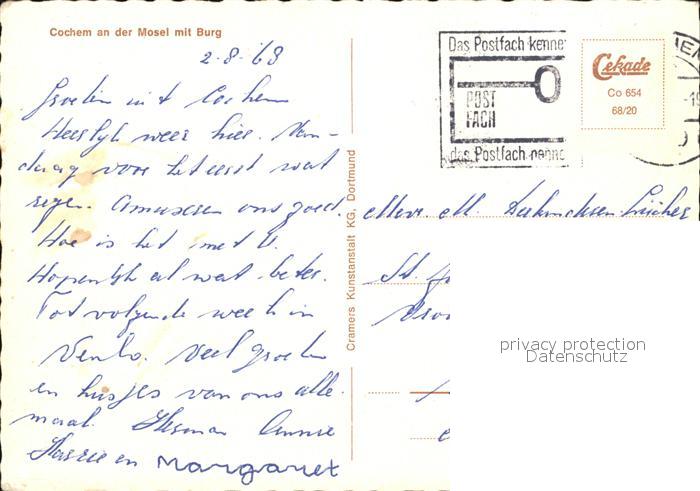 Cochem an der Mosel mit Burg
2-8-'68
Groeten uit Cochem
Heerlijk weer hier. Van-
daag voor het eerst wat
regen. Amuseren ons goed.
Hoe is het met U.
Hopenlijk al wat beter.
Tot volgende week in
Venlo. Veel groeten
en kusjes van ons alle-
maal. Herman Annie
en Margariet
Cramers Kunstanstalt KG, Dortmund
Das Postfach kenne
POST
FACH
das Postfach nenne
Cekade
Co 654
68/20
Mevr. M.
St.
privacy protection
Datenschutz